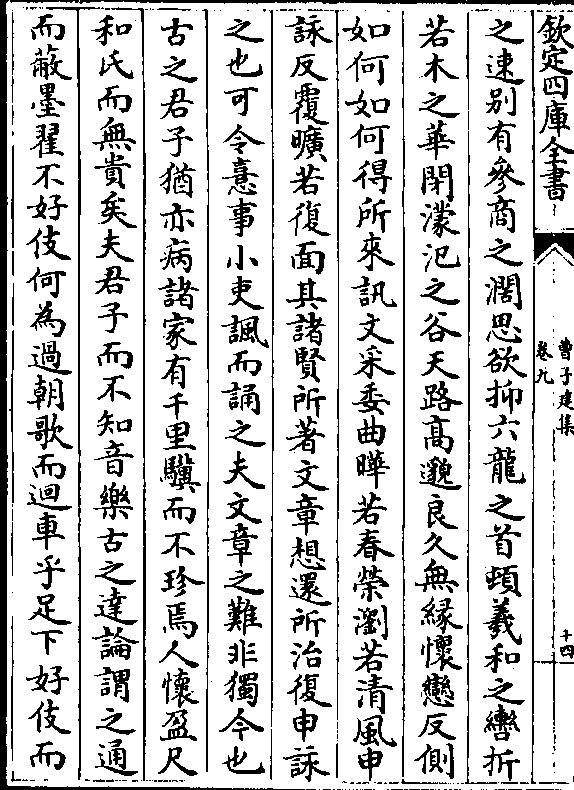 欽定四庫全書
曹子建集
卷九
十四
之速别有參商之濶思欲抑六龍之首頓羲和之轡折
若木之華閉濛汜之谷天路髙邈良久無緣懷戀反側
如何如何得所來訊文采委曲曄若春榮瀏若清風申
詠反覆曠若復面其諸賢所著文章想還所治復申詠
之也可令憙事小吏諷而誦之夫文章之難非獨今也
古之君子猶亦病諸家有千里驥而不珍焉人懷盈尺
和氏而無貴矣夫君子而不知音樂古之達論謂之通
而蔽墨翟不好伎何為過朝歌而迴車乎足下好伎而